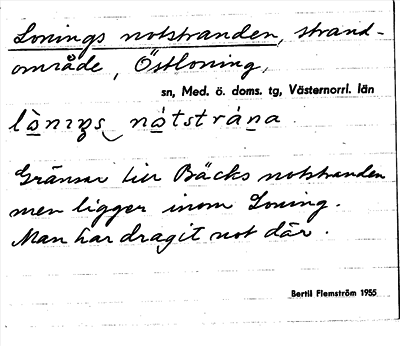 Lonings notstranden, strand-
område, Östloning,
sn, Med. ö. doms. tg, Västernorrl. län
lò̱nɪŋs nó̱tstráṉa.
Gränsar till Bäcks notstranden
men ligger inom Loning.
Man har dragit not där.
Bertil Flemström 1955